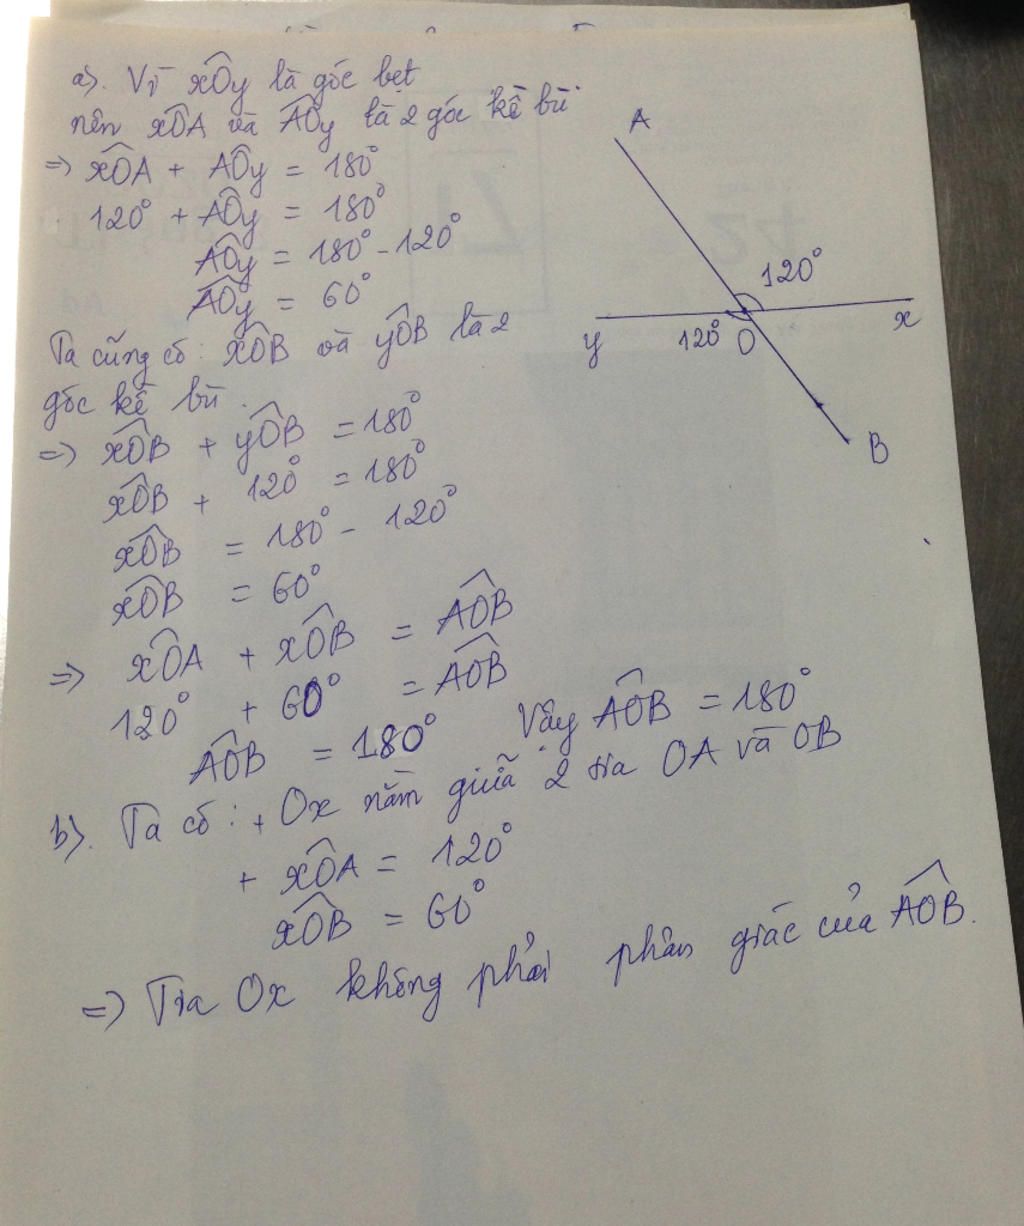 a). Vì xÔy là góc bẹt
nên xÔA và AÔy là 2 góc kề bù
=> xÔA + AÔy = 180°
120° + AÔy = 180°
AÔy = 180° - 120°
AÔy = 60°
Ta cũng có: xÔB và yÔB là 2
góc kề bù.
=> xÔB + yÔB = 180°
xÔB + 120° = 180°
xÔB = 180° - 120°
xÔB = 60°
=> xÔA + xÔB = AÔB
120° + 60° = AÔB
AÔB = 180° Vậy AÔB = 180°
b). Ta có: + Ox nằm giữa 2 tia OA và OB
+ xÔA = 120°
xÔB = 60°
=> Tia Ox không phải phân giác của AÔB.
A
120°
x
y
120°
O
B